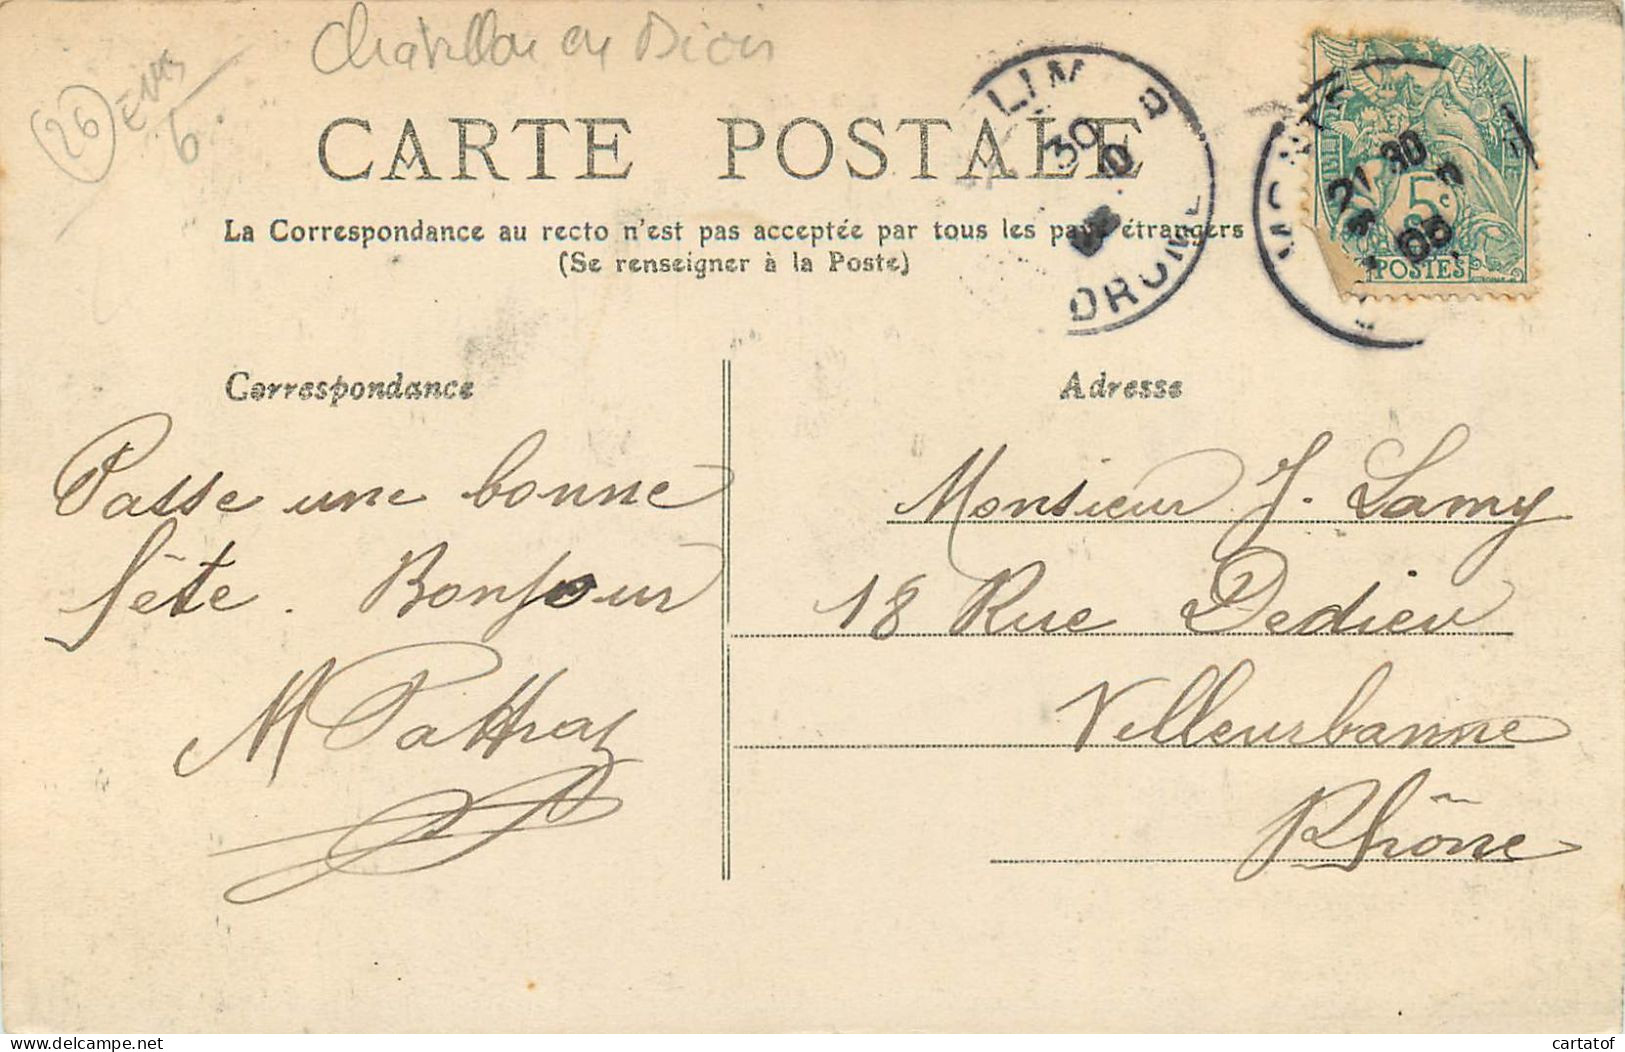 Chatillon en Diois
26 env
6
CARTE POSTALE
La Correspondance au recto n'est pas acceptée par tous les pays étrangers
(Se renseigner à la Poste)
LIM
30
DROME
21 30
06
5
POSTES
Correspondance
Passe une bonne
fête. Bonjour
Adresse
Monsieur J. Lamy
18 Rue Dedieu
Villeurbanne
Rhône
cartatof